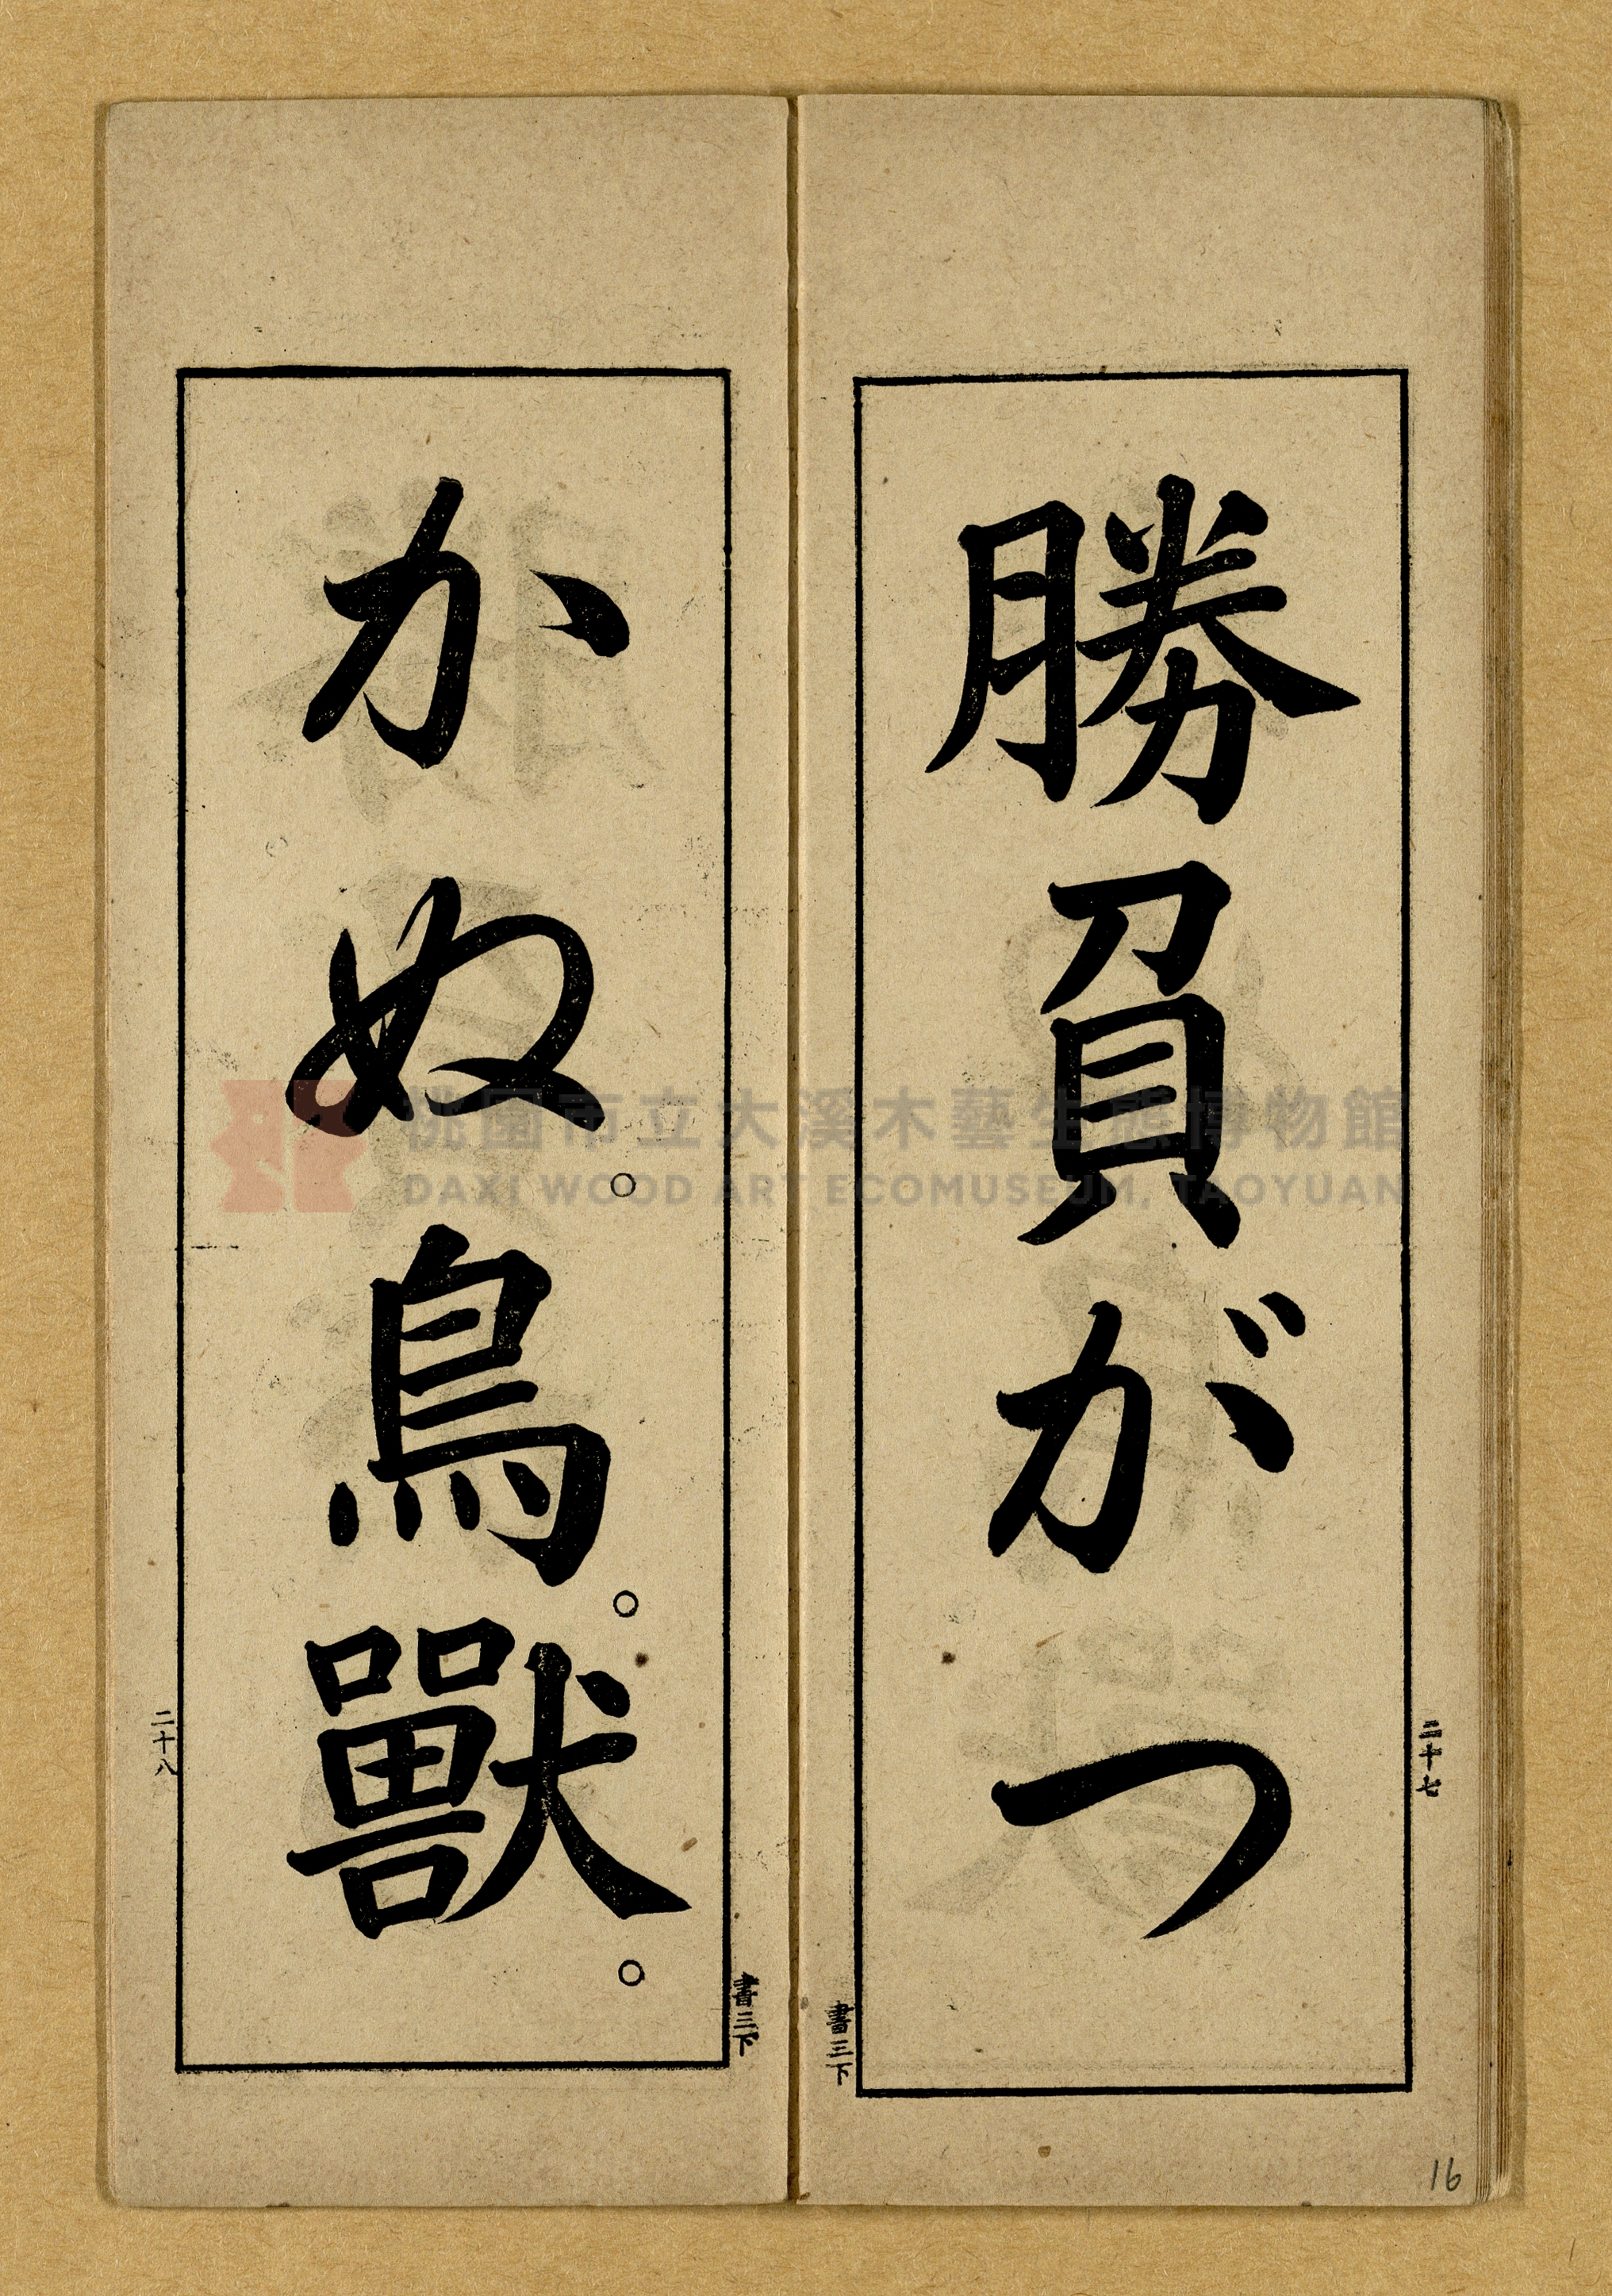 勝負がつ
二十七
書三下
かぬ。鳥。獸。
二十八
書三下
16
桃園市立大溪木藝生態博物館
DAXI WOOD ART ECOMUSEUM, TAOYUAN